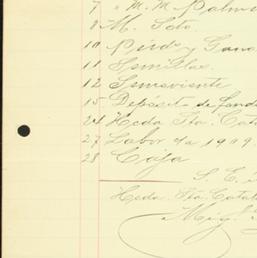 7 " M. M. Palm
8 M. Soto
10 Rindo y Gana
11 Semillas
12 Semoviente
15 Depósito de fond
24 Hcda Sta. Cata
27 Labor da 1909.
28 Caja
S. E.
Hcda. Sta. Catal
Mig.